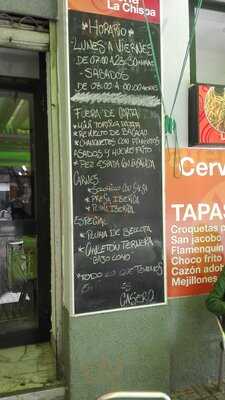 La Chispa
*HORARIO*
-LUNES A VIERNES
DE 07:00 A 23:30 HORAS
-SABADOS
DE 08:00 A 00:00 HORAS
FUERA DE CARTA
* REVUELTO DE BACALAO
* CHANQUETES CON PIMIENTOS
ASADOS Y HUEVO FRITO
* PEZ ESPADA
CARNES
* SOLOMILLO
* PRESA IBERICA
* PLUMA IBERICA
ESPECIAL
* PLUMA DE BELLOTA
* CHULETON TERNERA
BAJO LOMO
* TODO LO QUE TENEMOS
ES
CASERO
Cerv
TAPAS
Croquetas
San jacobo
Flamenquin
Choco frito
Cazón adob
Mejillones